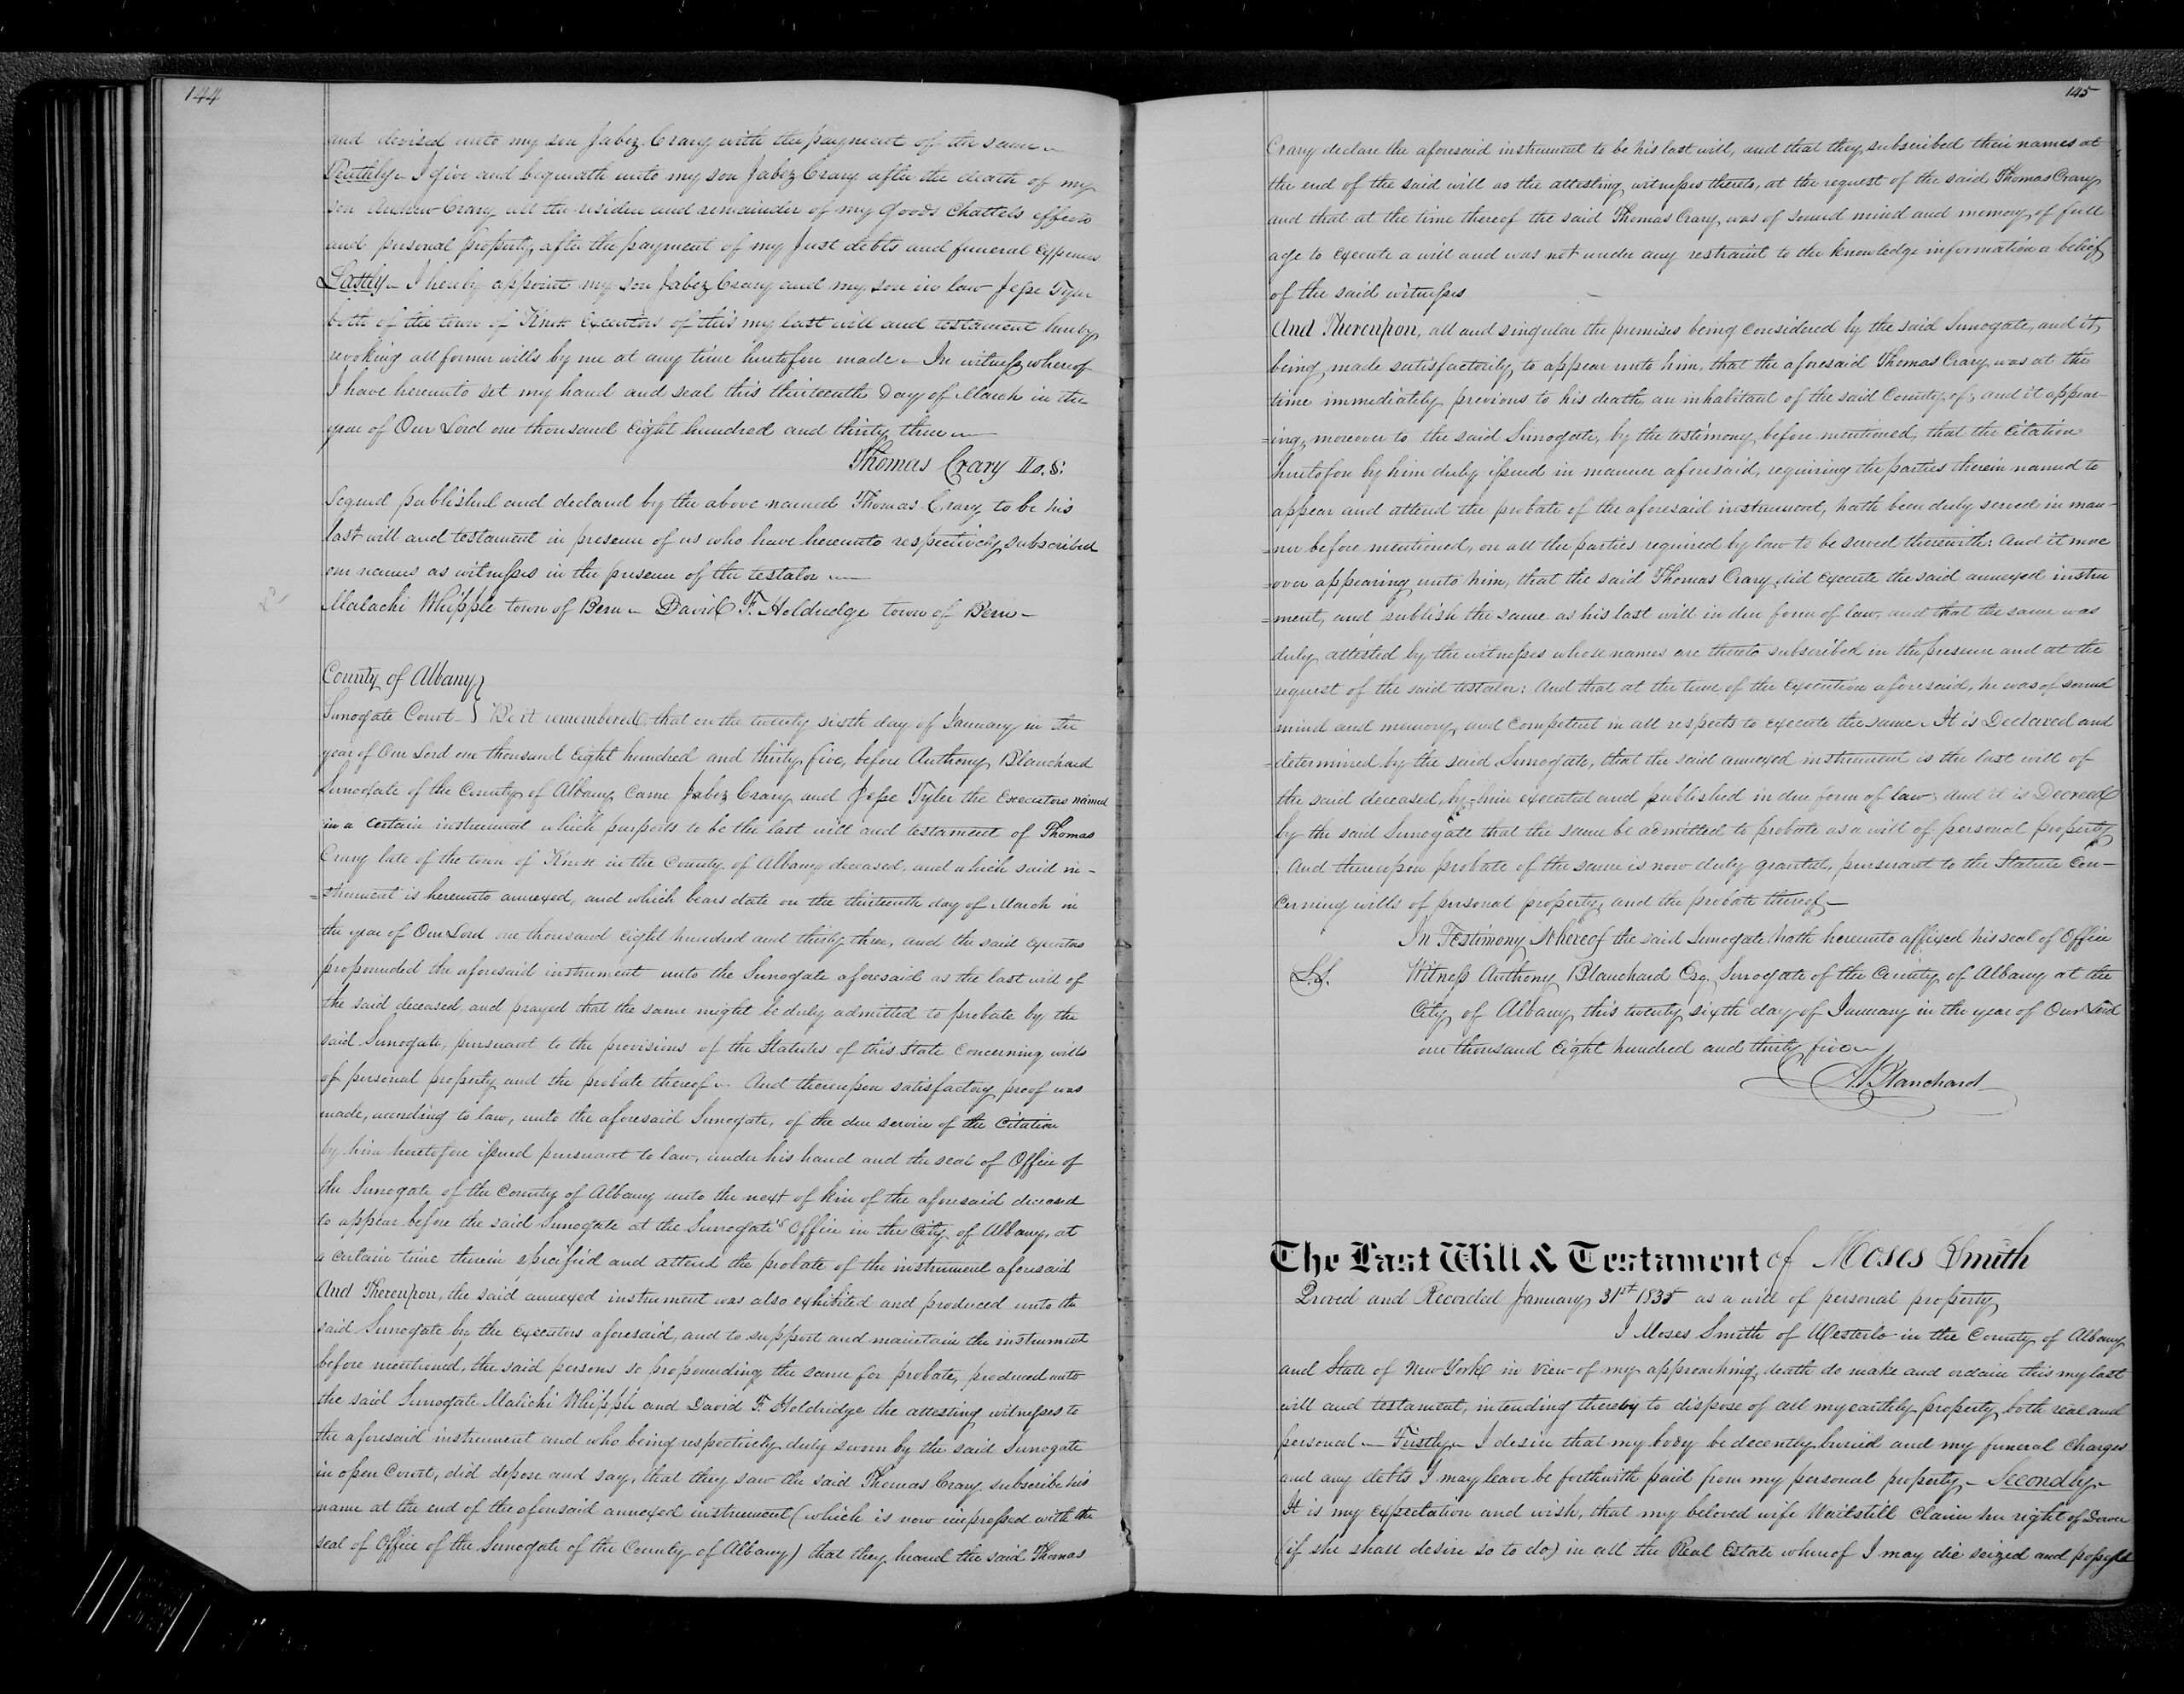 144
and devised unto my son Jabez Crary with the payment of the same
Tenthly I give and bequeath unto my son Jabez Crary after the death of my
son Andrew Crary all the residue and remainder of my goods Chattels effects
and personal property after the payment of my Just debts and funeral expenses
Lastly I hereby appoint my son Jabez Crary and my son in law Jesse Tyler
both of the town of Knox Executors of this my last will and testament hereby
revoking all former wills by me at any time heretofore made In witness whereof
I have hereunto set my hand and seal this thirteenth day of March in the
year of Our Lord one thousand Eight hundred and thirty three
Thomas Crary
Signed published and declared by the above named Thomas Crary to be his
last will and testament in presence of us who have hereunto respectively subscribed
our names as witnesses in the presence of the testator
Malachi Whipple town of Bern David F. Holdredge town of Bern
County of Albany
Surrogate Court } Be it remembered that on the twenty sixth day of January in the
year of Our Lord one thousand Eight hundred and thirty five, before Anthony Blanchard
Surrogate of the County of Albany Came Jabez Crary and Jesse Tyler the Executors named
in a certain instrument which purports to be the last will and testament of Thomas
Crary late of the town of Knox in the County of Albany deceased, and which said in-
=strument is hereunto annexed, and which bears date on the thirteenth day of March in
the year of Our Lord one thousand Eight hundred and thirty three, and the said Executors
propounded the aforesaid instrument unto the Surrogate aforesaid as the last will of
the said deceased, and prayed that the same might be duly admitted to probate by the
said Surrogate, pursuant to the provisions of the Statutes of this State Concerning wills
of personal property and the probate thereof. And thereupon satisfactory proof was
made, according to law, unto the aforesaid Surrogate, of the due service of the Citation
by him heretofore issued pursuant to law, under his hand and the seal of Office of
the Surrogate of the County of Albany unto the next of kin of the aforesaid deceased
to appear before the said Surrogate at the Surrogate's Office in the City of Albany, at
a certain time therein specified and attend the probate of the instrument aforesaid
And Thereupon, the said annexed instrument was also exhibited and produced unto the
said Surrogate by the Executors aforesaid, and to support and maintain the instrument
before mentioned, the said persons so propounding the same for probate, produced unto
the said Surrogate Malichi Whipple and David F. Holdridge the attesting witnesses to
the aforesaid instrument and who being respectively duly sworn by the said Surrogate
in open Court, did depose and say, that they saw the said Thomas Crary subscribe his
name at the end of the aforesaid annexed instrument (which is now impressed with the
seal of Office of the Surrogate of the County of Albany) that they heard the said Thomas
145
Crary declare the aforesaid instrument to be his last will, and that they subscribed their names at
the end of the said will as the attesting witnesses thereto, at the request of the said Thomas Crary
and that at the time thereof the said Thomas Crary was of sound mind and memory, of full
age to execute a will and was not under any restraint to the knowledge information or belief
of the said witnesses
And Thereupon, all and singular the premises being considered by the said Surrogate, and it
being made satisfactorily to appear unto him, that the aforesaid Thomas Crary was at the
time immediately previous to his death, an inhabitant of the said County of, and it appear-
=ing moreover to the said Surrogate, by the testimony before mentioned, that the Citation
heretofore by him duly issued in manner aforesaid, requiring the parties therein named to
appear and attend the probate of the aforesaid instrument, hath been duly served in man-
=ner before mentioned, on all the parties required by law to be served therewith: And it more
=over appearing unto him, that the said Thomas Crary did execute the said annexed instru
=ment, and publish the same as his last will in due form of law, and that the same was
duly attested by the witnesses whose names are thereto subscribed in the presence and at the
request of the said testator: And that at the time of the execution aforesaid, he was of sound
mind and memory, and competent in all respects to execute the same. It is Declared and
determined by the said Surrogate, that the said annexed instrument is the last will of
the said deceased, by him executed and published in due form of law, and it is Decreed
by the said Surrogate that the same be admitted to probate as a will of personal property
And thereupon probate of the same is now duly granted, pursuant to the Statute Con-
cerning wills of personal property, and the probate thereof.
In Testimony Whereof the said Surrogate hath hereunto affixed his seal of Office
L.S. Witness Anthony Blanchard Esq. Surrogate of the County of Albany at the
City of Albany this twenty sixth day of January in the year of Our Lord
one thousand Eight hundred and thirty five
A. Blanchard
The Last Will & Testament of Moses Smith
Proved and Recorded January 31st 1835 as a will of personal property
I Moses Smith of Westerlo in the County of Albany
and State of New York in view of my approaching death do make and ordain this my last
will and testament, intending thereby to dispose of all my earthly property both real and
personal Firstly I desire that my body be decently buried and my funeral charges
and any debts I may leave be forthwith paid from my personal property Secondly
It is my expectation and wish, that my beloved wife Waitstill Claim her right of Dower
(if she shall desire so to do) in all the Real Estate whereof I may die seized and possessed